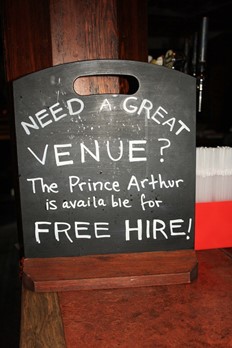 NEED A GREAT
VENUE?
The Prince Arthur
is available for
FREE HIRE!